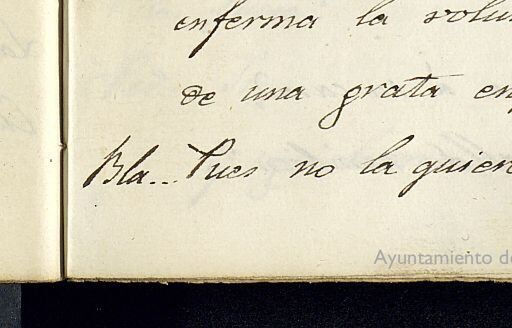 enferma la volun
de una grata en
Bla... Pues no la quien
Ayuntamiento de